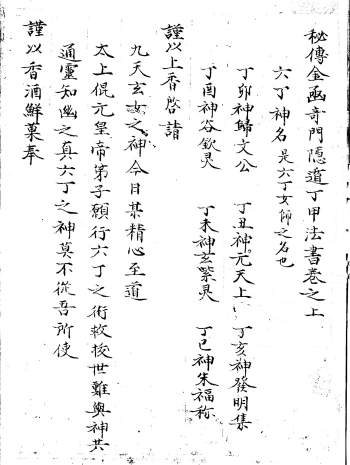 秘傳金函奇門隐遁丁甲法書卷之上
六丁神名 是六丁女師之名也
丁卯神歸文公 丁丑神元天上 丁亥神發明集
丁酉神谷欽灵 丁未神玄紫灵 丁巳神朱福称
謹以上香啓請
九天玄女之神今日某精心至道
太上混元皇帝弟子願行六丁之術救援世難與神共
通靈知幽之真六丁之神莫不從吾所使
謹以香酒鮮菓奉